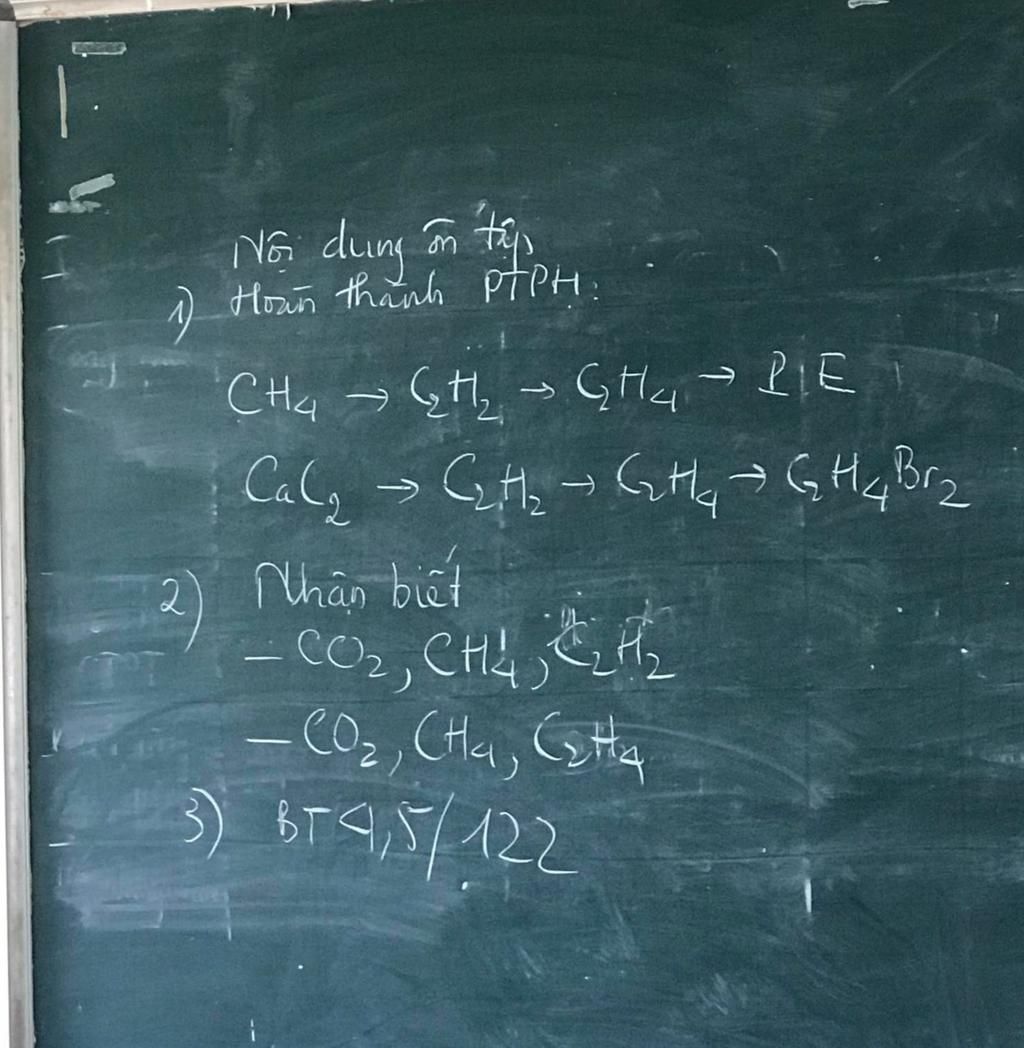 Nội dung ôn tập
1) Hoàn thành PTPH:
CH₄ → C₂H₂ → C₂H₄ → P.E
CaC₂ → C₂H₂ → C₂H₄ → C₂H₄Br₂
2) Nhận biết
– CO₂, CH₄, C₂H₂
– CO₂, CH₄, C₂H₄
3) BT 4,5/122